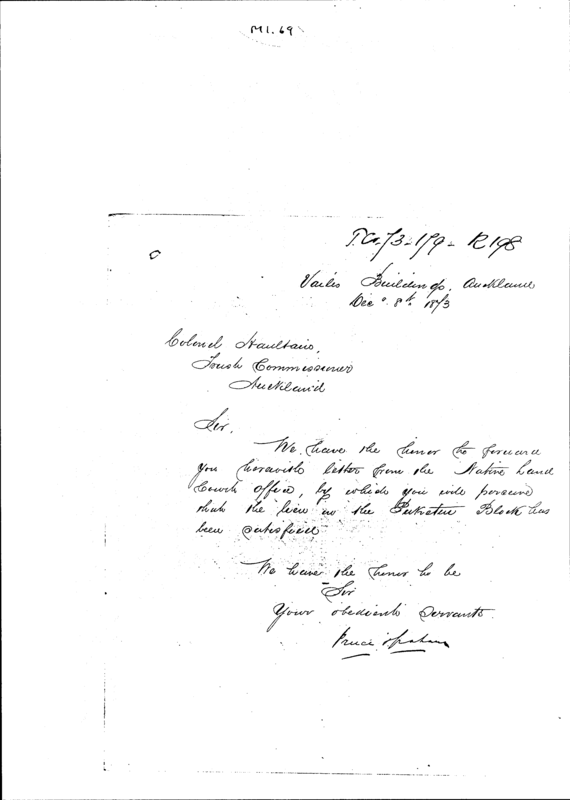 M1.69
T.C. 73-179- R198
Vailes Buildings, Auckland
Dec 8th 1873
Colonel Haultain,
Trust Commissioner
Auckland
Sir.
We have the honor to forward
you herewith letter from the Native Land
Court office, by which you will perceive
that the lien on the Block has
been satisfied
We have the honor to be
Sir
Your obedient Servants